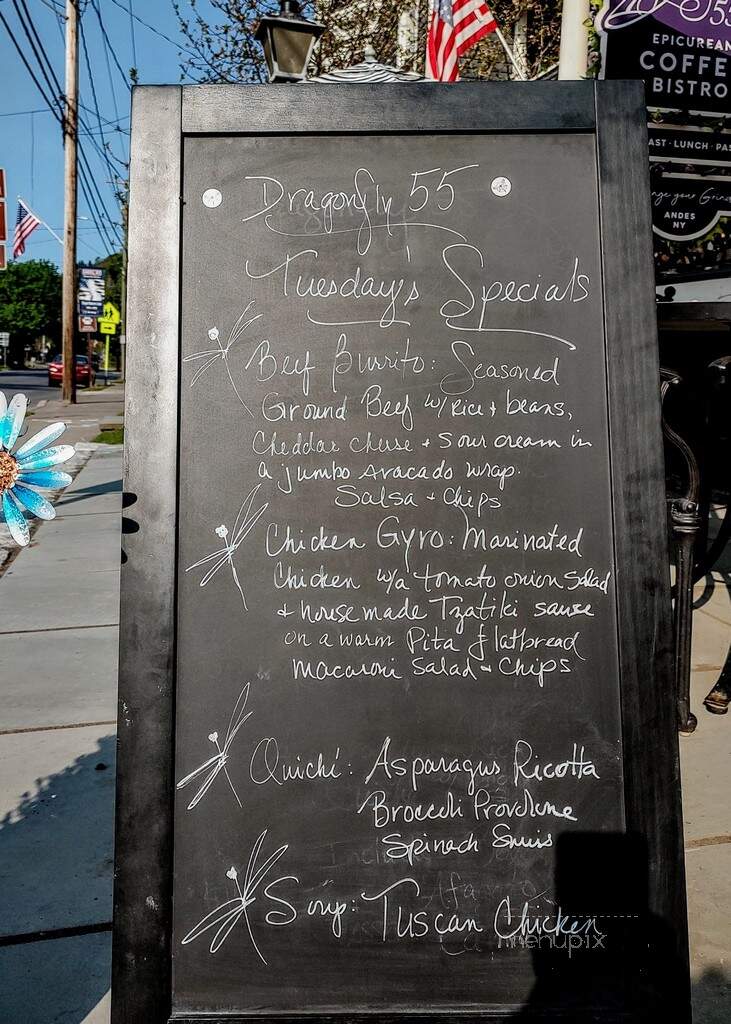 55
EPICUREAN
COFFE
BISTRO
AST · LUNCH · PAS
nge your Grind
ANDES
NY
Dragonfly 55
Tuesday's Specials
Beef Burrito: Seasoned
Ground Beef w/ Rice + beans,
Cheddar cheese + sour cream in
a jumbo avacado wrap.
Salsa + Chips
Chicken Gyro: Marinated
Chicken w/a tomato onion salad
& house made Tzatiki sause
on a warm Pita flatbread
macaroni Salad + Chips
Quiché: Asparagus Ricotta
Broccoli Provolone
Spinach Swiss
Soup: Tuscan Chicken
menupix